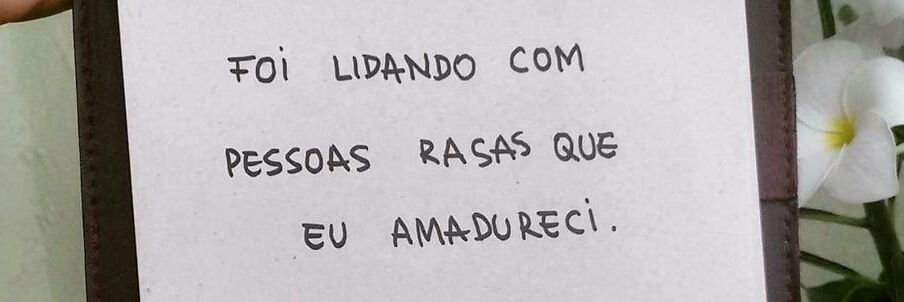 FOi LIDANDO COM
PESSOAS RASAS QUE
EU AMADURECi.